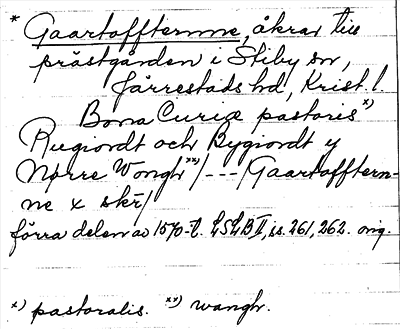 * Gaartoffterne, åkrar till
prästgården i Stiby sn,
Järrestads hd, Krist. l.
Bona Curiæ pastoris x)
Rugiordt och Bygiordt y
Nørre Wongh xx) /---/ Gaartoffter-
ne x skr/
förra delen av 1570-t. LSLB II, s. 261, 262. orig.
x) pastoralis. xx) wangh.